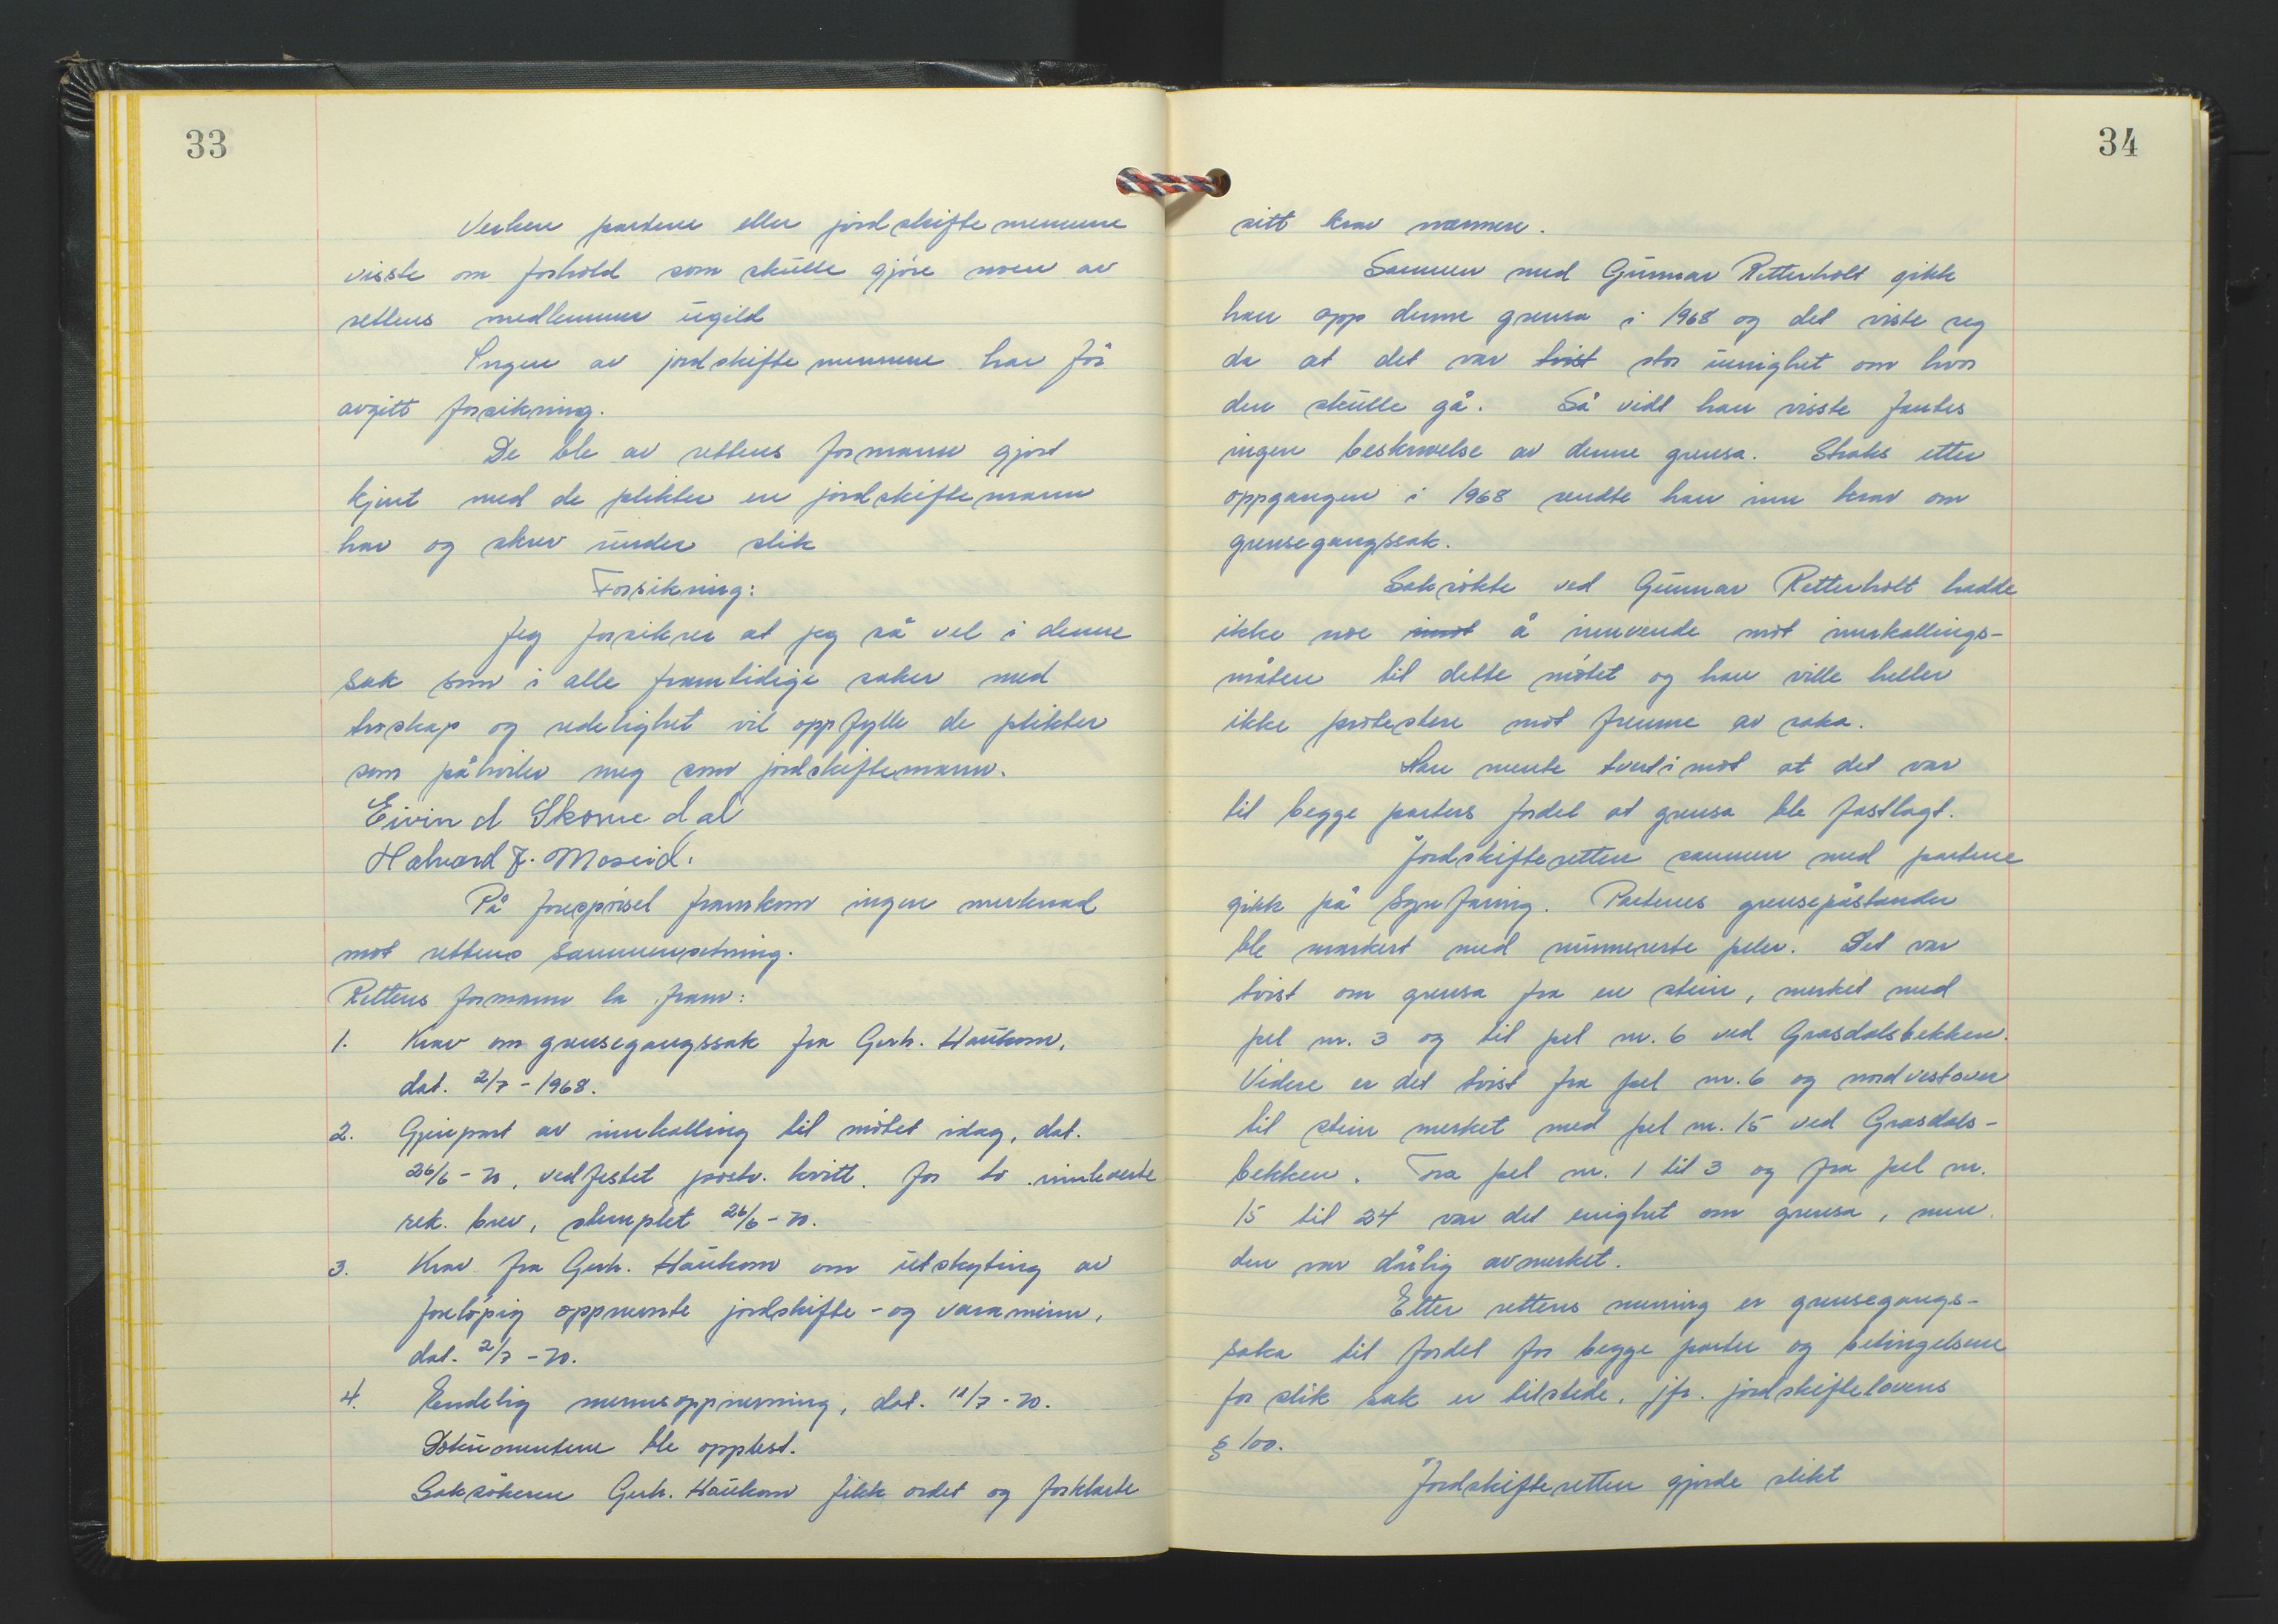 33
Verken partene eller jordskiftemennene
visste om forhold som skulle gjøre noen av
rettens medlemmer ugild
Ingen av jordskiftemennene har før
avgitt forsikring.
De ble av rettens formann gjort
kjent med de plikter en jordskiftemann
har og skrev under slik
Forsikring:
Jeg forsikrer at jeg så vel i denne
sak som i alle framtidige saker med
troskap og redelighet vil oppfylle de plikter
som påhviler meg som jordskiftemann.
Eivind Skomedal
Halvard F. Moseid.
På forespørsel framkom ingen merknad
mot rettens sammensetning.
Rettens formann la fram:
1. Krav om grensegangssak fra Gerh. Haukom,
dat. 2/7 - 1968.
2. Gjenpart av innkalling til møtet idag, dat.
26/6 - 70, vedfestet postv. kvitt. for to innleverte
rek. brev, stemplet 26/6 - 70.
3. Krav fra Gerh. Haukom om utskyting av
foreløpig oppnevnte jordskifte- og varamenn,
dat. 2/7 - 70.
4. Endelig mennsoppnevning, dat. 11/7 - 70.
Dokumentene ble opplest.
Saksøkeren Gerh. Haukom fikk ordet og forklarte
34
sitt krav nærmere.
Sammen med Gunnar Retterholt gikk
han opp denne grensa i 1968 og det viste seg
da at det var tvist stor uenighet om hvor
den skulle gå. Så vidt han visste fantes
ingen beskrivelse av denne grensa. Straks etter
oppgangen i 1968 sendte han inn krav om
grensegangssak.
Saksøkte ved Gunnar Retterholt hadde
ikke noe imot å innvende mot innkallings-
måten til dette møtet og han ville heller
ikke protestere mot fremme av saka.
Han mente tvert i mot at det var
til begge parters fordel at grensa ble fastlagt.
Jordskifteretten sammen med partene
gikk på synfaring. Partenes grensepåstander
ble markert med nummererte peler. Det var
tvist om grensa fra en stein, merket med
pel nr. 3 og til pel nr. 6 ved Grasdalsbekken.
Videre er det tvist fra pel nr. 6 og nordvestover
til stein merket med pel nr. 15 ved Grasdals-
bekken. Fra pel nr. 1 til 3 og fra pel nr.
15 til 24 var det enighet om grensa, men
den var dårlig avmerket.
Etter rettens mening er grensegangs-
saka til fordel for begge parter og betingelsene
for slik sak er tilstede, jfr. jordskiftelovens
§ 100.
Jordskifteretten gjorde slikt